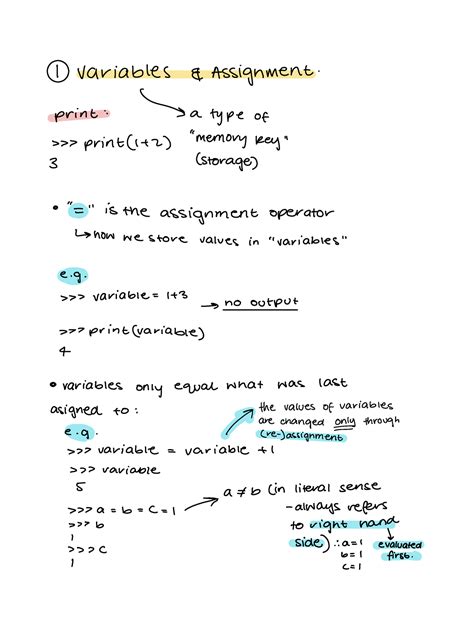 ① Variables & Assignment.
print:
>>> print(1+2)
3
a type of
"memory key"
(storage)
• "=" is the assignment operator
↳ how we store values in "variables"
e.g.
>>> variable = 1+3 → no output
>>> print(variable)
4
• variables only equal what was last
asigned to:
the values of variables
are changed only through
(re-)assignment
e.g.
>>> variable = variable +1
>>> variable
5
>>> a = b = c = 1
>>> b
1
>>> c
1
a ≠ b (in literal sense
- always refers
to right hand
side) ∴ a=1
b=1
c=1
evaluated
first.